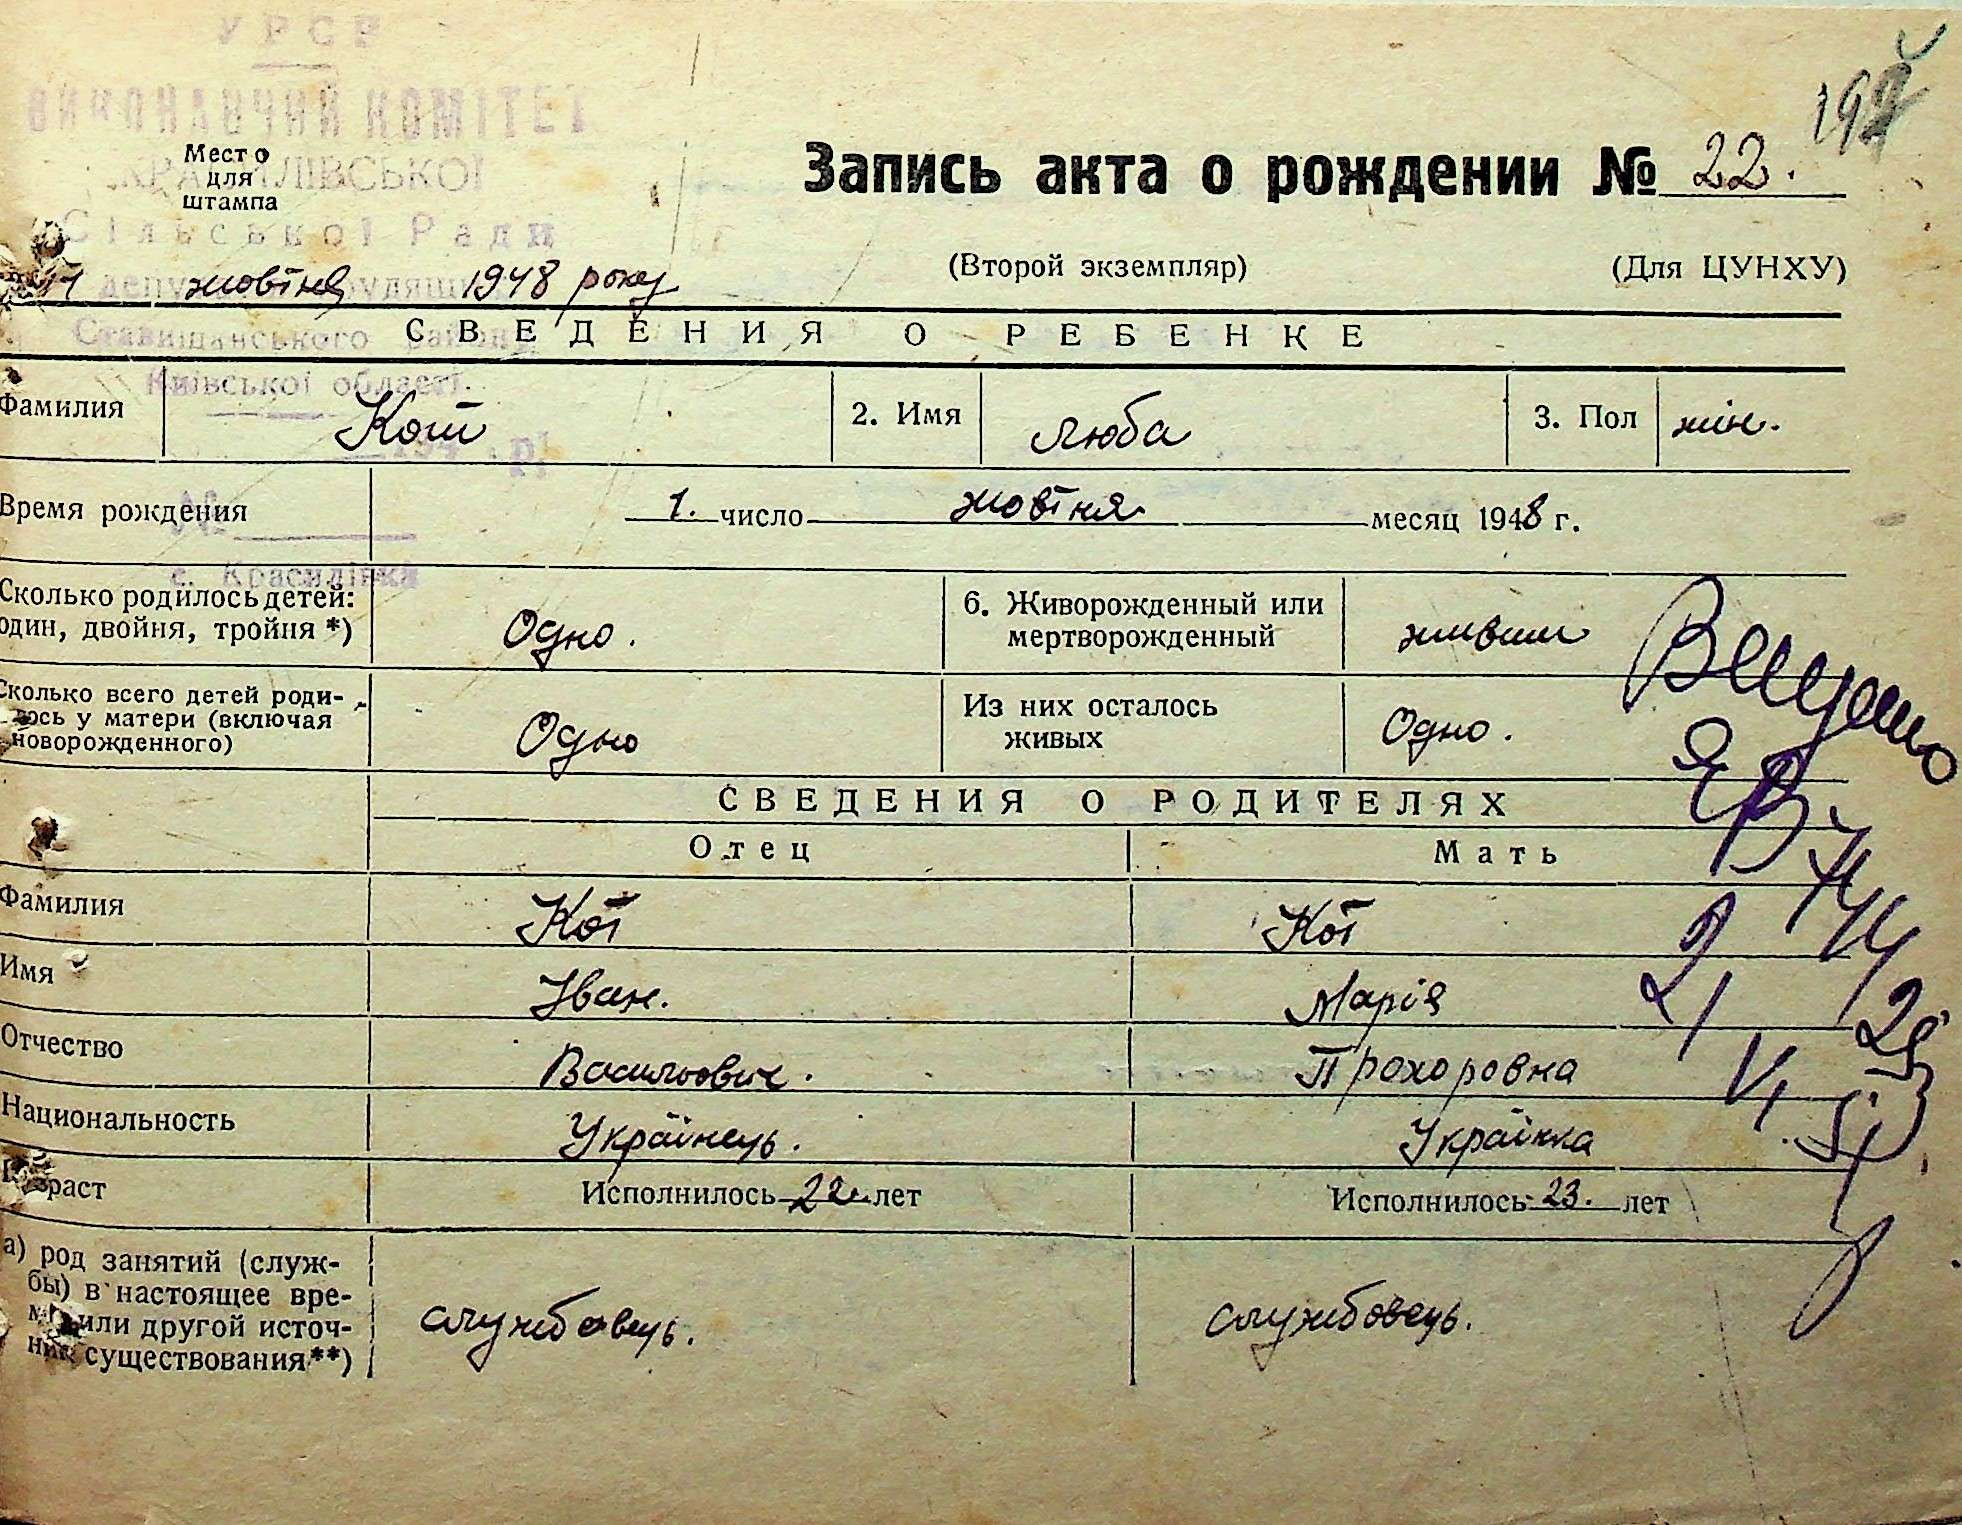 УРСР
ВИКОНАВЧИЙ КОМІТЕТ
КРАСИЛІВСЬКОЇ
Сільської Ради
депутатів трудящих
Ставищанського району
Київської області
194 р.
№
с. Красилівка
Место
для
штампа
192
Запись акта о рождении № 22.
(Второй экземпляр)
(Для ЦУНХУ)
жовтня 1948 року
СВЕДЕНИЯ О РЕБЕНКЕ
Фамилия Кот 2. Имя Люба 3. Пол жін.
Время рождения 1. число жовтня месяц 1948 г.
Сколько родилось детей:
один, двойня, тройня *) Одно.
6. Живорожденный или
мертворожденный живым
Сколько всего детей роди-
лось у матери (включая
новорожденного) Одно
Из них осталось
живых Одно.
СВЕДЕНИЯ О РОДИТЕЛЯХ
Отец Мать
Фамилия Кот Кот
Имя Іван. Марія
Отчество Васильович. Прохоровна
Национальность Українець. Українка
Возраст Исполнилось 22 лет Исполнилось 23. лет
а) род занятий (служ-
бы) в настоящее вре-
мя или другой источ-
ник существования**)
службовець. службовець.